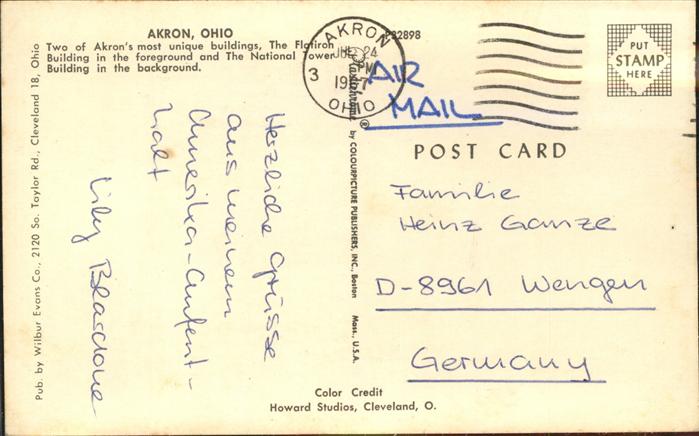 AKRON, OHIO
Two of Akron's most unique buildings, The Flatiron
Building in the foreground and The National Tower
Building in the background.
Pub. by Wilbur Evans Co., 2120 So. Taylor Rd., Cleveland 18, Ohio
Herzliche Grüsse
aus meinem
Amerika-Aufent-
halt
Lily
AKRON
24
PM
3
OHIO
AIR
MAIL
PUT
STAMP
HERE
Plastichrome® by COLOURPICTURE PUBLISHERS, INC., Boston Mass., U.S.A.
POST CARD
Familie
Heinz Ganze
D-8961 Wengen
Germany
Color Credit
Howard Studios, Cleveland, O.